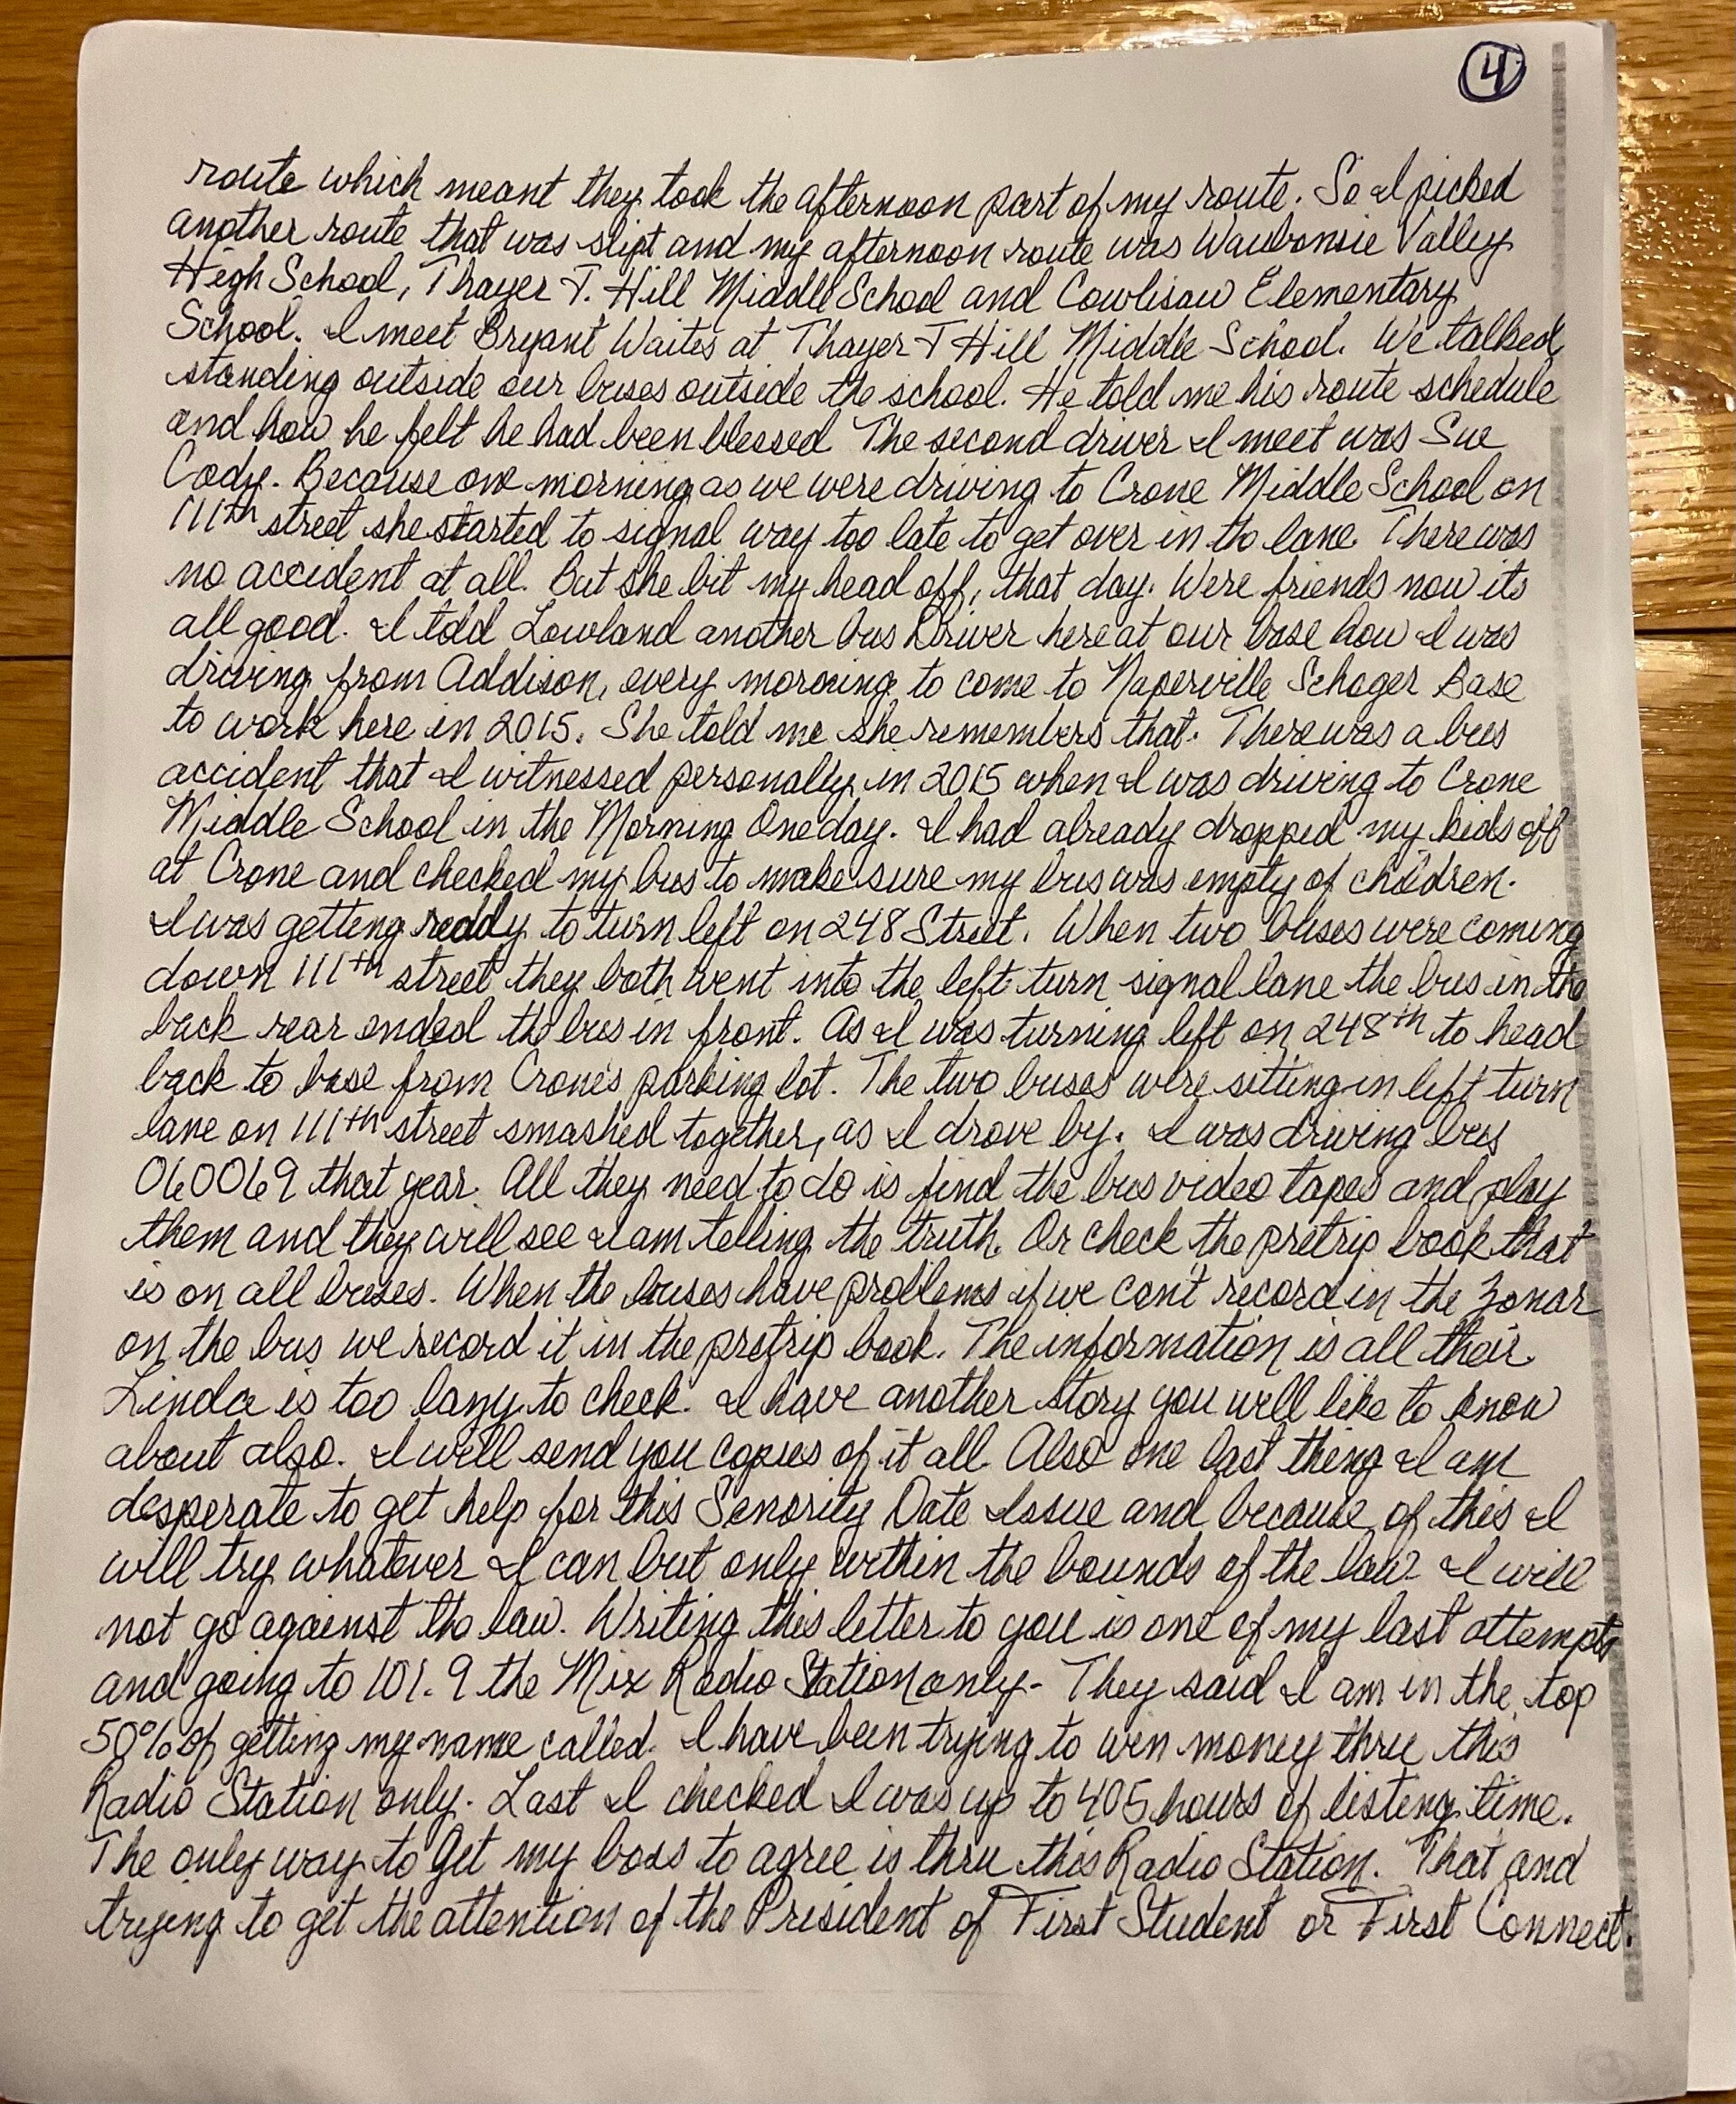 4
route which meant they took the afternoon part of my route. So I picked
another route that was slipt and my afternoon route was Waubonsie Valley
High School, Thayer T. Hill Middle School and Cowlisaw Elementary
School. I meet Bryant Waites at Thayer T Hill Middle School. We talked
standing outside our buses outside the school. He told me his route schedule
and how he felt he had been blessed The second driver I meet was Sue
Cody. Because one morning as we were driving to Crone Middle School on
111th street she started to signal way too late to get over in the lane. There was
no accident at all. But she bit my head off, that day. Were friends now its
all good. I told Lowland another bus Driver here at our base how I was
driving from Addison, every morning to come to Naperville Schoger Base
to work here in 2015. She told me she remembers that. There was a bus
accident that I witnessed personally in 2015 when I was driving to Crone
Middle School in the Morning One day. I had already dropped my kids off
at Crone and checked my bus to make sure my bus was empty of children.
I was getting reddy to turn left on 248 Street. When two buses were coming
down 111th street they both went into the left turn signal lane the bus in the
back rear ended the bus in front. As I was turning left on 248th to head
back to base from Crone's parking lot. The two buses were sitting in left turn
lane on 111th street smashed together, as I drove by. I was driving bus
060069 that year. All they need to do is find the bus video tapes and play
them and they will see I am telling the truth. Or check the pretrip book that
is on all buses. When the buses have problems if we can't record in the Zonar
on the bus we record it in the pretrip book. The information is all their
Linda is too lazy to check. I have another story you will like to know
about also. I will send you copies of it all. Also one last thing I am
desperate to get help for this Senority Date Issue and because of this I
will try whatever I can but only within the bounds of the law. I will
not go against the law. Writing this letter to you is one of my last attempts
and going to 101.9 the Mix Radio Station only. They said I am in the top
50% of getting my name called. I have been trying to win money thru this
Radio Station only. Last I checked I was up to 405 hours of listing time.
The only way to get my boss to agree is thru this Radio Station. That and
trying to get the attention of the President of First Student or First Connect.